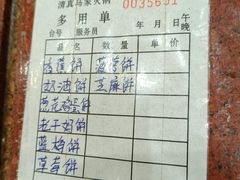 清真马家火锅
0035691
多用单
台号 服务员 年 月 日 午晚
品名 数量 单价
香蕉饼 菠萝饼
奶油饼 芝麻饼
葱花鸡蛋饼
老干妈饼
蓝梅饼
草莓饼